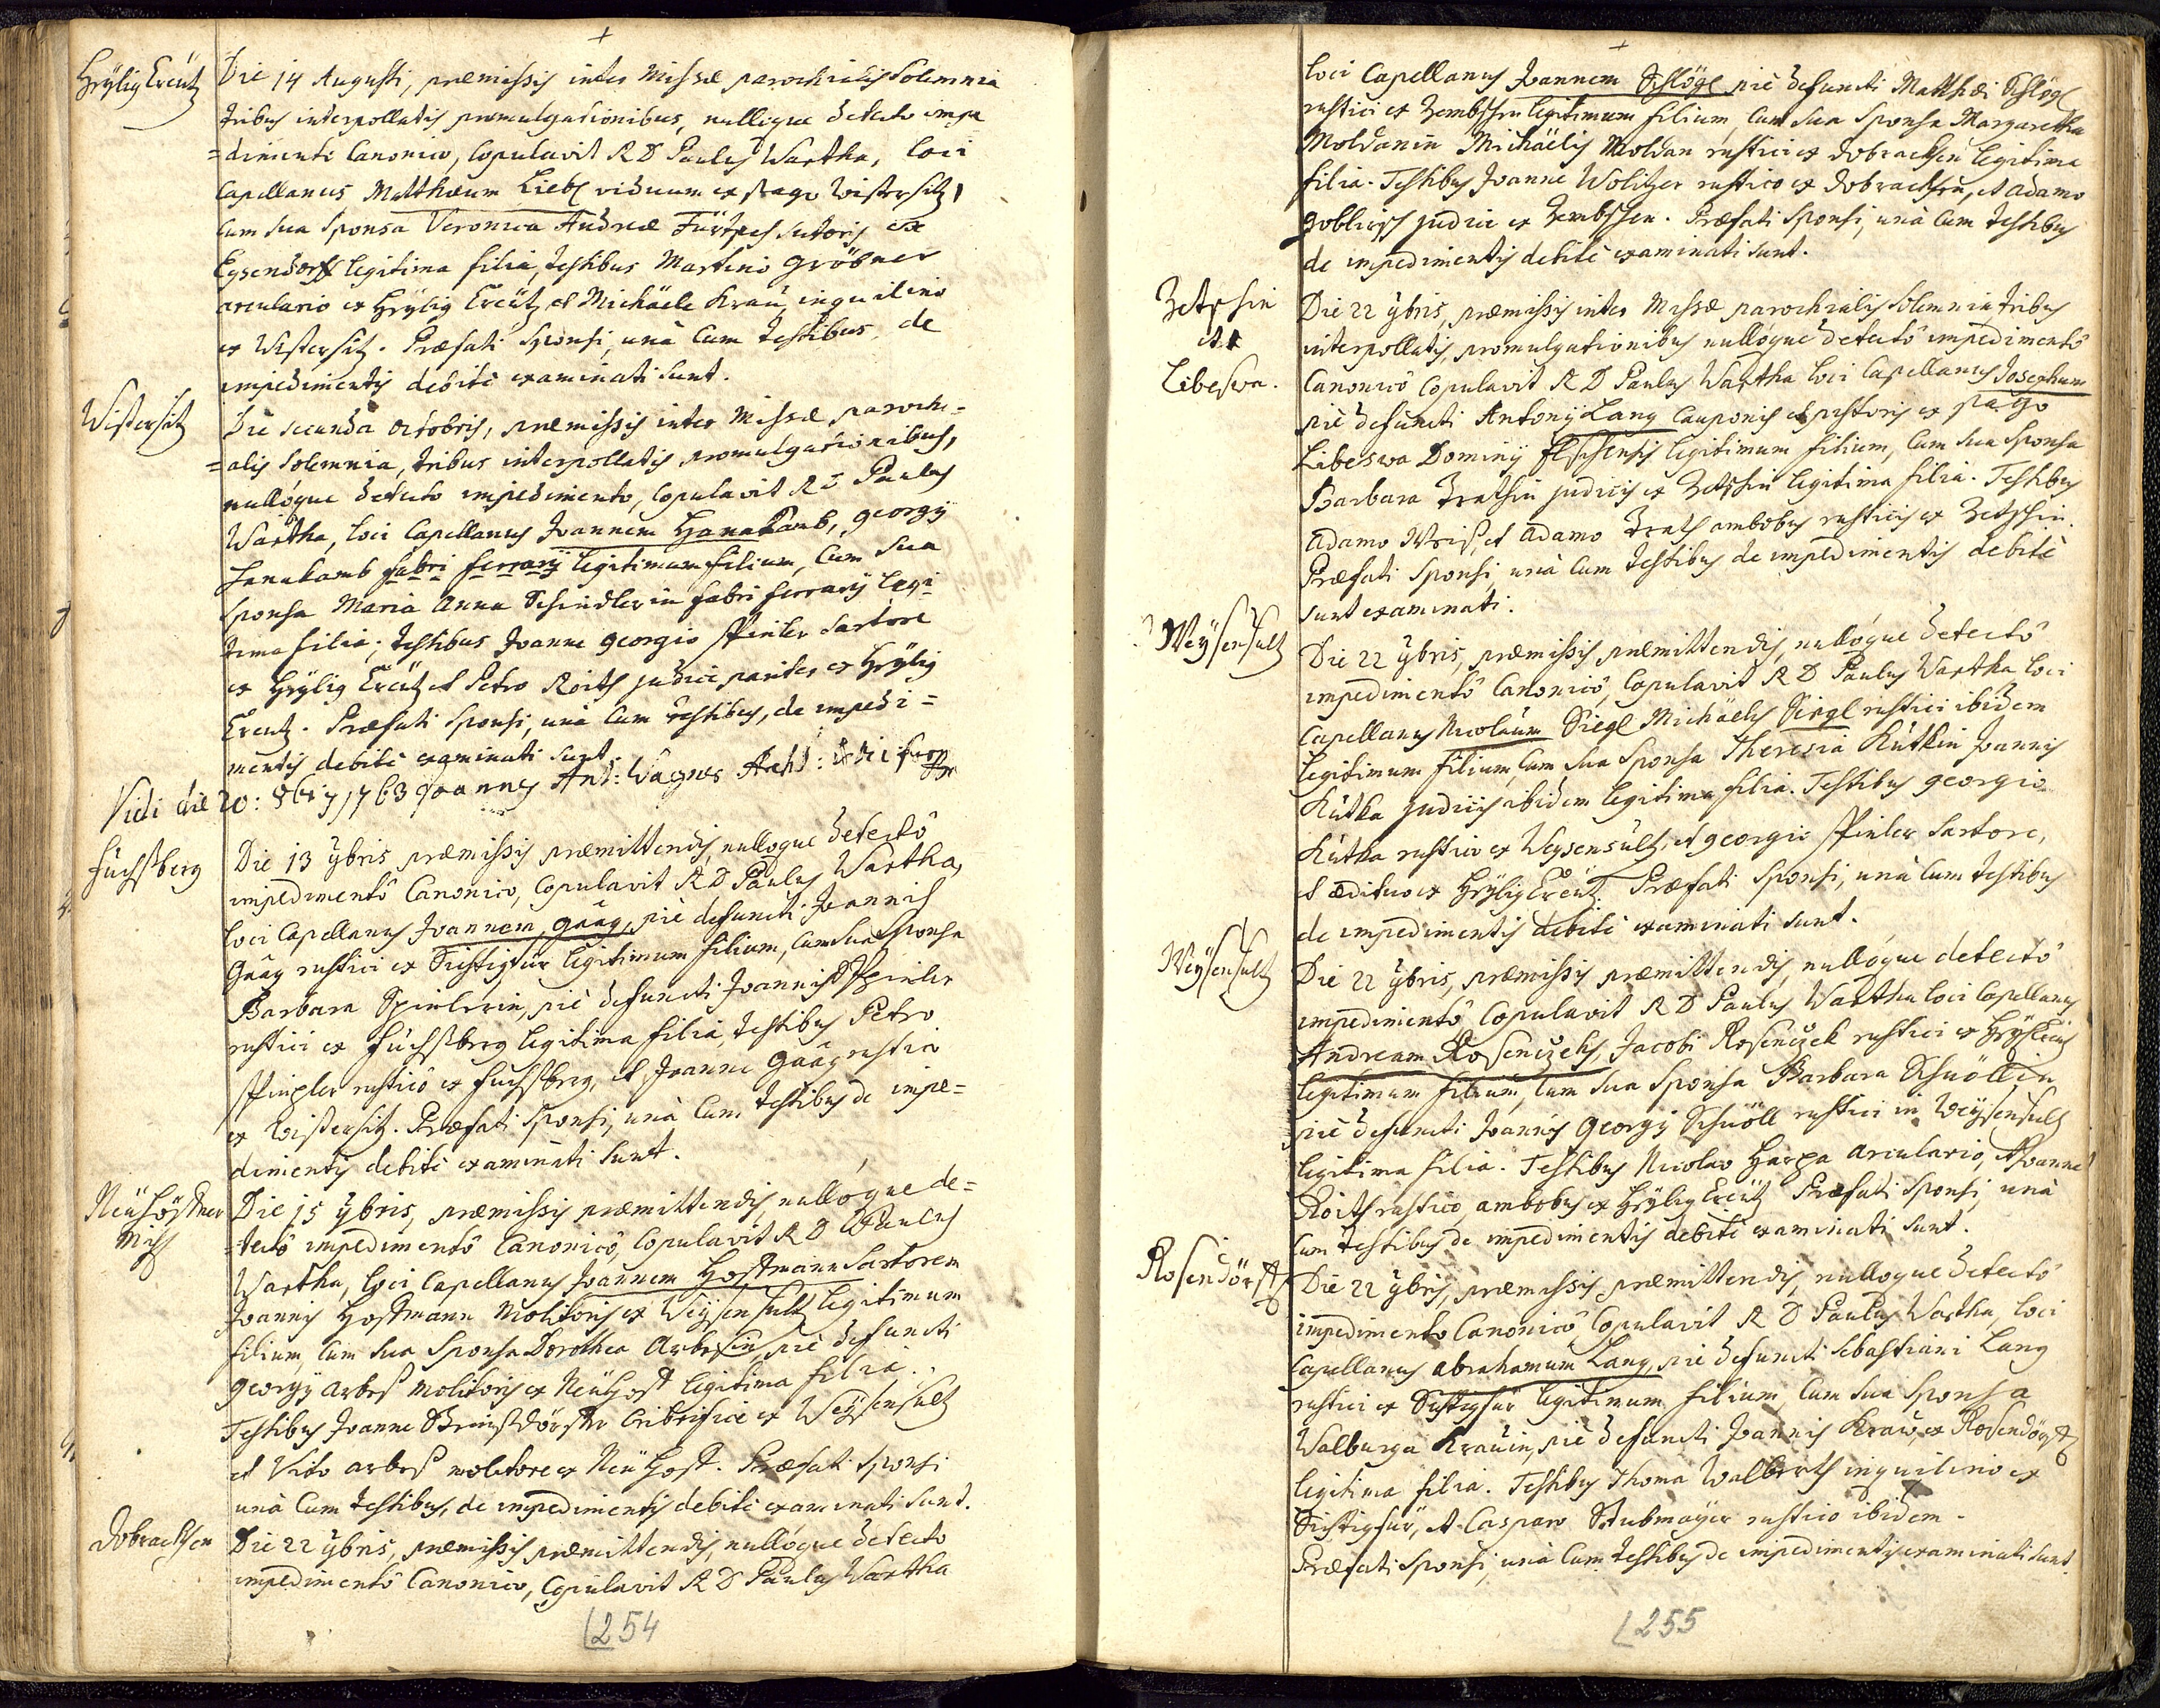 Heÿlig Creütz
Die 14 Augusti, præmissis inter Missæ parochialis Solemnia
tribus interpollatis promulgationibus, nulloque detecto impe
=dimento Canonico, Copulavit R D Paulus Wartha, loci
Capellanus Matthæum Liebl viduum ex pago Wistersitz,
cum sua Sponsa Veronica Andreæ sutoris ex
Eysendorff legitima filia, testibus Martino Gröbner
arculario ex Heÿlig Creütz et Michäele Krau inquilino
ex Wistersitz. Præfati Sponsi, unà cum testibus de
impedimentis debitè examinati sunt.
Wistersitz
Die secunda octobris, præmissis inter Missæ parochi=
=alis Solemnia, tribus interpollatis promulgationibus,
nullòque detecto impedimento, Copulavit R D Paulus
Wartha, loci Capellanus Joannem Hanakamb, georgÿ
Hanakamb fabri ferrarÿ legitimum filium, Cum sua
Sponsa Maria Anna Schindlerin fabri ferrarÿ legi
tima filia; testibus Joanne georgio Spinler Sartore
ex Heÿlig Creütz et Petro Roith judice pariter ex Heÿlig
Creutz. Præfati Sponsi, unà Cum testibus, de impedi=
mentis debitè examinati sunt.
Vidi die 20: 8bris 1763 Joannes Ant: Wagner
Füchssberg
Die 13 9bris præmissis præmittendis, nulloque detectô
impedimentô Canonico, Copulavit R D Paulus Wartha,
loci Capellanus Joannem gäàg, piè defuncti Joannis
Gäàg rustici ex Sichtigfür legitimum filium, Cum sua Sponsa
Barbara Spinlerin, piè defuncti Joannis Spinler
rustici ex Füchssberg legitima filia, testibus Petro
Spingler rusticô ex Fuchssberg, et Joanne Gäàg rustico
ex Wistersitz. Præfati Sponsi, unà Cum testibus de impe=
dimentis debitè examinati sunt.
Die 15 9bris, præmissis præmittendis, nullòque de=
=tectô impedimentô Canonicô, Copulavit R D Paulus
Wartha, loci Capellanus Joannem Hostmann Sartorem
Joannis Hostmann Molitoris ex Weÿsensultz legitimum
filium, Cum sua Sponsa Dorothea Arbesin, piè defuncti
georgÿ arbes molitoris ex Neühost legitima filia.
Testibus Joanne cribrifice ex Weÿsensultz
et Vito arbes molitore ex Neühost. Præfati Sponsi
unà Cum testibus, de impedimentis debitè examinati sunt.
Dobrachsen
Die 22 9bris, præmissis præmittendis, nullòque detecto
impedimentô Canonico, Copulavit R D Paulus Wartha
254
loci Capellanus Joannem Schlögl piè defuncti Matthæi Schlögl
rustici ex legitimum filium, Cum sua Sponsa Margaretha
Moldanin Michäelis Moldan rustici ex Dobrachsen legitima
filia. Testibus Joanne Wolitzer rustico ex Dobrachsen, et adamo
judice ex Præfati Sponsi, unà Cum testibus
de impedimentis debitè examinati sunt.
Zetschin
et
Libeswa.
Die 22 9bris, præmissis inter Missæ parochialis Solemnia tribus
interpollatis, promulgationibus nullòque detectô impedimentô
Canonicô Copulavit R D Paulus Wartha loci Capellanus Josephum
piè defuncti Antonÿ Lang Cauponis et pistoris ex pago
Libeswa Dominÿ legitimum filium, Cum sua Sponsa
Barbara judicis ex Zetschin legitima filia. Testibus
Adamo Weiss, et adamo ambobus rusticis ex Zetschin.
Præfati Sponsi unà Cum testibus de impedimentis debitè
sunt examinati.
Weÿsensultz
Die 22 9bris, præmissis præmittendis, nullòque detectô
impedimentô Canonicô, Copulavit R D Paulus Wartha loci
Capellanus Nicolaum Siegl Michäelis Siegl rustici ibidem
legitimum filium, Cum sua Sponsa Theresia Kutkin Joannis
Kutka judicis ibidem legitima filia. Testibus georgio
Kutka rustico ex Weysensultz, et georgio Spinler Sartore,
et ædituo ex Heÿlig Creütz. Præfati Sponsi, unà Cum testibus
de impedimentis debitè examinati sunt.
Weÿsensultz
Die 22 9bris, præmissis præmittendis, nullòque detectô
impedimentô Copulavit R D Paulus Wartha loci Capellanus
Andream Rosenczek, Jacobi Rosenczek rustici ex
legitimum filium, Cum sua Sponsa Barbara Schnöllin
piè defuncti Joannis Georgÿ Schnöll rustici in Weÿsensultz
legitima filia. Testibus Nicolao Harga arculario, et Joanne
Roith rustico, ambobus ex Heÿlig Creütz Præfati Sponsi, unà
Cum testibus de impedimentis debitè examinati sunt.
Rosendörff
Die 22 9bris, præmissis præmittendis, nulloque detectô
impedimento Canonicô Copulavit R D Paulus Wartha, loci
Capellanus Abrahamum Lang, piè defuncti Sebastiani Lang
rustici ex Sichtigfür legitimum filium, Cum sua Sponsa
Walburga Krauin, piè defuncti Joannis Kraw, ex Rosendörff
legitima filia. Testibus Thoma Walberth inquilino ex
Sichtigfür, et Casparo Stubmaÿer rustico ibidem.
Præfati Sponsi, unà Cum testibus de impedimentis examinati sunt.
255